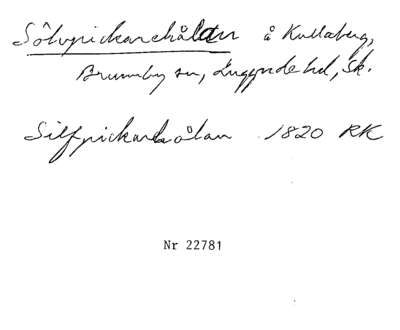 Sôlvpickarehålan å Kullaberg,
Brunnby sn, Luggude hd, Sk.
Silfpickarehålan 1820 RK
Nr 22781